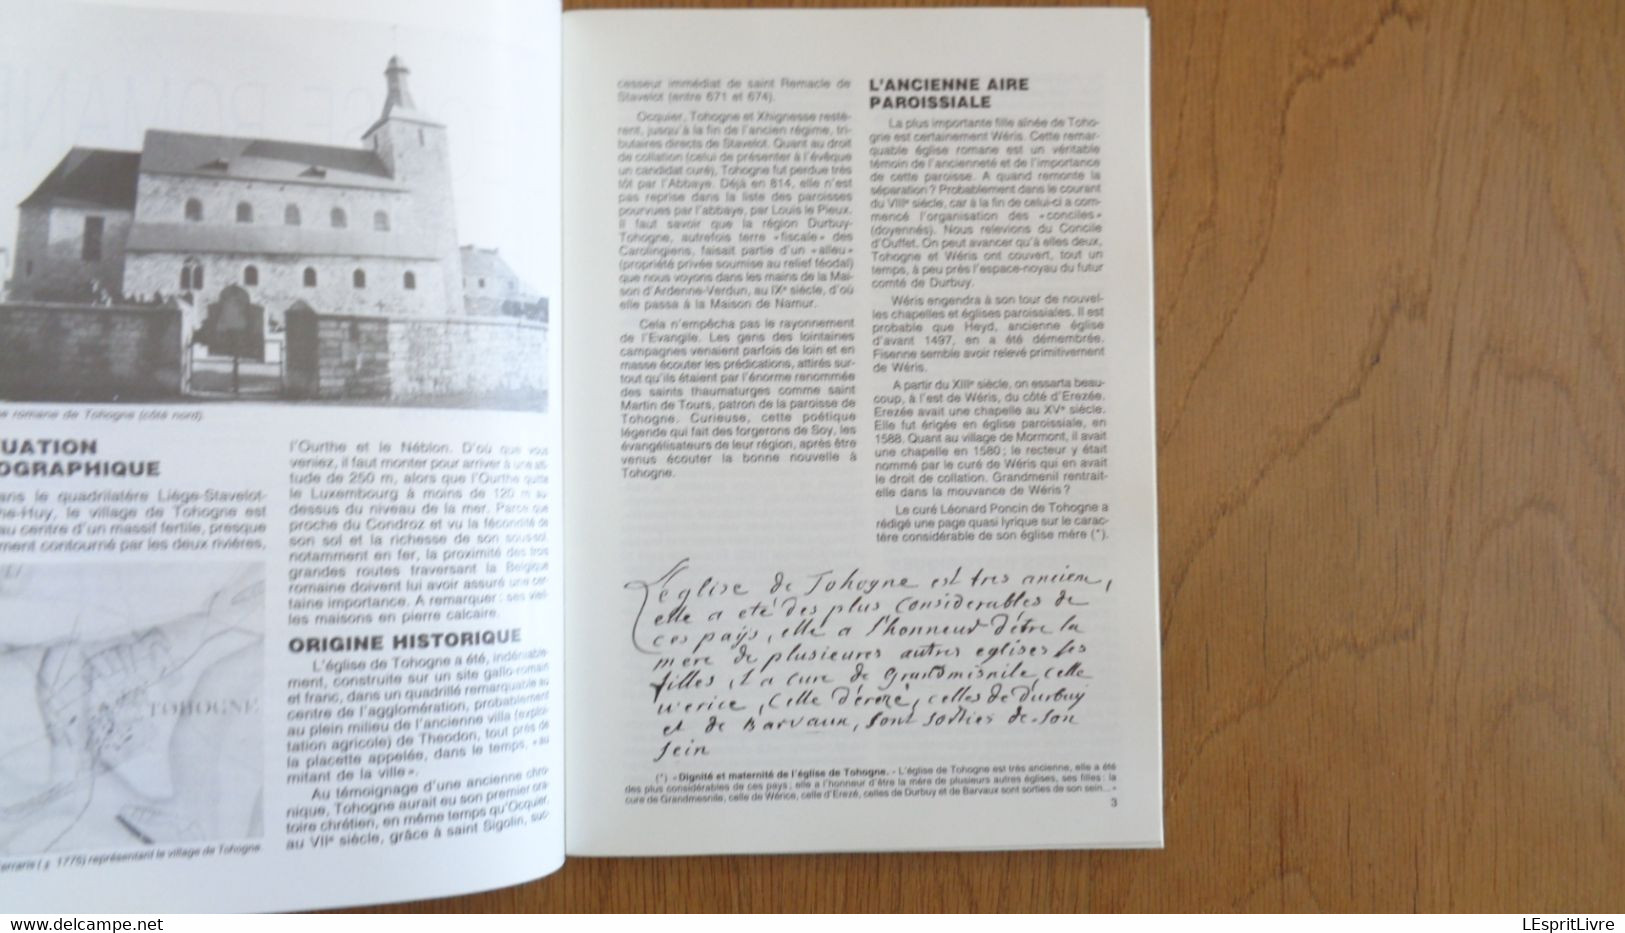 e romane de Tohogne (côté nord).
UATION
OGRAPHIQUE
ans le quadrilatère Liège-Stavelot-
he-Huy, le village de Tohogne est
au centre d'un massif fertile, presque
ment contourné par les deux rivières,
TOHOGNE
erraris (± 1775) représentant le village de Tohogne.
l'Ourthe et le Néblon. D'où que vous
veniez, il faut monter pour arriver à une alti-
tude de 250 m, alors que l'Ourthe quitte
le Luxembourg à moins de 120 m au-
dessus du niveau de la mer. Parce que
proche du Condroz et vu la fécondité de
son sol et la richesse de son sous-sol,
notamment en fer, la proximité des trois
grandes routes traversant la Belgique
romaine doivent lui avoir assuré une cer-
taine importance. A remarquer : ses vieil-
les maisons en pierre calcaire.
ORIGINE HISTORIQUE
L'église de Tohogne a été, indéniable-
ment, construite sur un site gallo-romain
et franc, dans un quadrillé remarquable au
centre de l'agglomération, probablement
au plein milieu de l'ancienne villa (exploi-
tation agricole) de Theodon, tout près de
la placette appelée, dans le temps, « au
mitant de la ville ».
Au témoignage d'une ancienne chro-
nique, Tohogne aurait eu son premier ora-
toire chrétien, en même temps qu'Ocquier,
au VIIe siècle, grâce à saint Sigolin, suc-
cesseur immédiat de saint Remacle de
Stavelot (entre 671 et 674).
Ocquier, Tohogne et Xhignesse restè-
rent, jusqu'à la fin de l'ancien régime, tri-
butaires directs de Stavelot. Quant au droit
de collation (celui de présenter à l'évêque
un candidat curé), Tohogne fut perdue très
tôt par l'Abbaye. Déjà en 814, elle n'est
pas reprise dans la liste des paroisses
pourvues par l'abbaye, par Louis le Pieux.
Il faut savoir que la région Durbuy-
Tohogne, autrefois terre « fiscale » des
Carolingiens, faisait partie d'un « alleu »
(propriété privée soumise au relief féodal)
que nous voyons dans les mains de la Mai-
son d'Ardenne-Verdun, au IXe siècle, d'où
elle passa à la Maison de Namur.
Cela n'empêcha pas le rayonnement
de l'Evangile. Les gens des lointaines
campagnes venaient parfois de loin et en
masse écouter les prédications, attirés sur-
tout qu'ils étaient par l'énorme renommée
des saints thaumaturges comme saint
Martin de Tours, patron de la paroisse de
Tohogne. Curieuse, cette poétique
légende qui fait des forgerons de Soy, les
évangélisateurs de leur région, après être
venus écouter la bonne nouvelle à
Tohogne.
L'ANCIENNE AIRE
PAROISSIALE
La plus importante fille aînée de Toho-
gne est certainement Wéris. Cette remar-
quable église romane est un véritable
témoin de l'ancienneté et de l'importance
de cette paroisse. A quand remonte la
séparation ? Probablement dans le courant
du VIIIe siècle, car à la fin de celui-ci a com-
mencé l'organisation des « conciles »
(doyennés). Nous relevions du Concile
d'Ouffet. On peut avancer qu'à elles deux,
Tohogne et Wéris ont couvert, tout un
temps, à peu près l'espace-noyau du futur
comté de Durbuy.
Wéris engendra à son tour de nouvel-
les chapelles et églises paroissiales. Il est
probable que Heyd, ancienne église
d'avant 1497, en a été démembrée.
Fisenne semble avoir relevé primitivement
de Wéris.
A partir du XIIIe siècle, on essarta beau-
coup, à l'est de Wéris, du côté d'Erezée.
Erezée avait une chapelle au XVe siècle.
Elle fut érigée en église paroissiale, en
1588. Quant au village de Mormont, il avait
une chapelle en 1580 ; le recteur y était
nommé par le curé de Wéris qui en avait
le droit de collation. Grandmenil rentrait-
elle dans la mouvance de Wéris ?
Le curé Léonard Poncin de Tohogne a
rédigé une page quasi lyrique sur le carac-
tère considérable de son église mère (*).
L'eglise de Tohogne est tres ancienne,
elle a eté des plus considerables de
ces pays, elle a l'honneur d'être la
mere de plusieures autres eglises ses
filles, la cure de Grandmisnile, celle
werice, celle d'érezé, celles de durbuy
et de Barvaux, sont sorties de son
sein
(*) « Dignité et maternité de l'église de Tohogne. - L'église de Tohogne est très ancienne, elle a été
des plus considérables de ces pays ; elle a l'honneur d'être la mère de plusieurs autres églises, ses filles : la
cure de Grandmesnile, celle de Wérice, celle d'Erezé, celles de Durbuy et de Barvaux sont sorties de son sein... »
3
www.delcampe.net
LEspritLivre